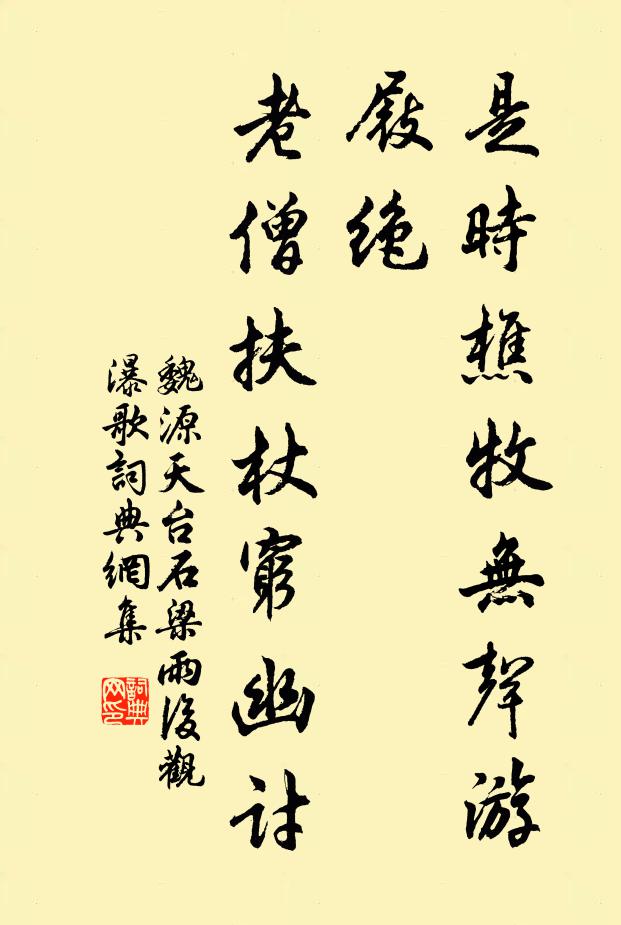 是時樵牧無聲游
屐絶
老僧扶杖窮幽討
魏源天台石梁雨後觀
瀑歌詞典網集
詞典
网印